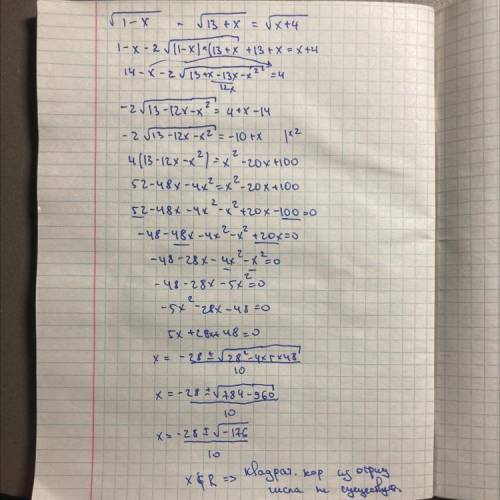 √(1-x) - √(13+x) = √(x+4)
1-x-2√((1-x)*(13+x) +13+x = x+4
14-x-2√(13+x-13x-x²) = 4
12x
-2√(13-12x-x²) = 4+x-14
-2√(13-12x-x²) = -10+x |x2
4(13-12x-x²) = x²-20x+100
52-48x-4x² = x²-20x+100
52-48x-4x²-x²+20x-100=0
-48-48x-4x²-x²+20x=0
-48-28x-4x²-x²=0
-48-28x-5x²=0
-5x²-28x-48=0
5x+28x+48=0
x = -28±√(28²-4x5x48) / 10
x = -28±√(784-960) / 10
x = -28±√(-176) / 10
x∉R => квадрат. кор из отриц
числа не существует